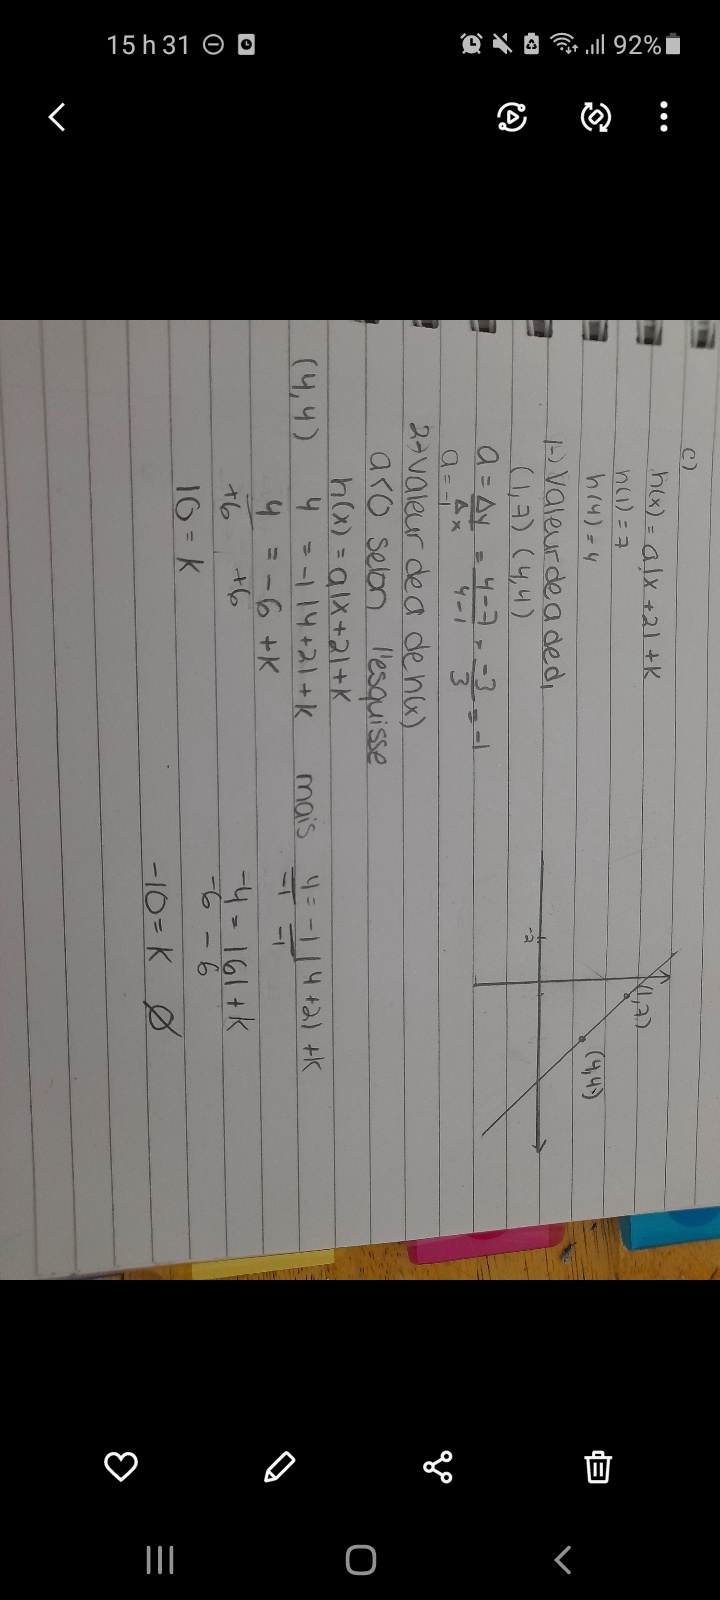 15 h 31 92%
c)
h(x) = a|x+2|+k
h(1) = 7
h(4) = 4
1-) Valeur de a de d1
(1,7) (4,4)
a = Δy/Δx = 4-7/4-1 = -3/3 = -1
a = -1
2→ valeur de a de h(x)
a<0 selon l'esquisse
h(x) = a|x+2|+k
(4,4) 4 = -1|4+2|+k mais 4 = -1|4+2|+k
-1 -1
4 = -6 +k -4 = |6|+k
+6 +6 -6 -6
10 = k -10 = k ∅
-2
(1,7)
(4,4)